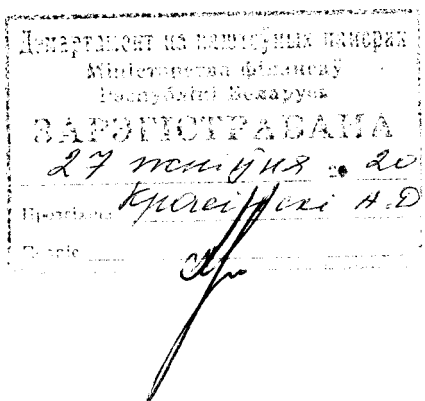 Дэпартамент па каштоўных паперах
Міністэрства фінансаў
Рэспублікі Беларусь
ЗАРЭГІСТРАВАНА
27 жніўня 20
Прозвішча Красінскі А.Д
Подпіс